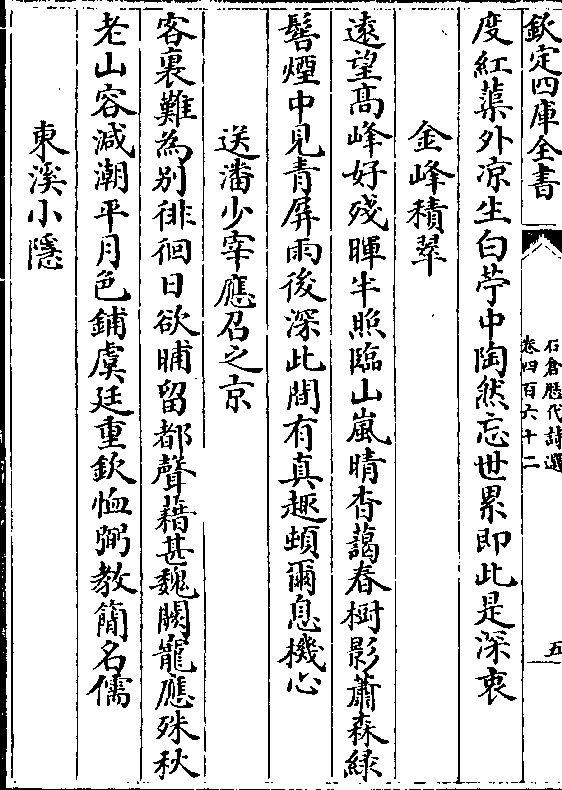 欽定四庫全書
石倉歷代詩選
卷四百六十二
五
度紅蕖外凉生白苧中陶然忘世累即此是深衷
金峰積翠
遠望髙峰好殘暉半照臨山嵐晴杳藹春樹影蕭森緑
髻煙中見青屏雨後深此間有真趣頓爾息機心
送潘少宰應召之京
客裏難為别徘徊日欲晡留都聲藉甚魏闕寵應殊秋
老山容減潮平月色鋪虞廷重欽恤弼教簡名儒
東溪小隱